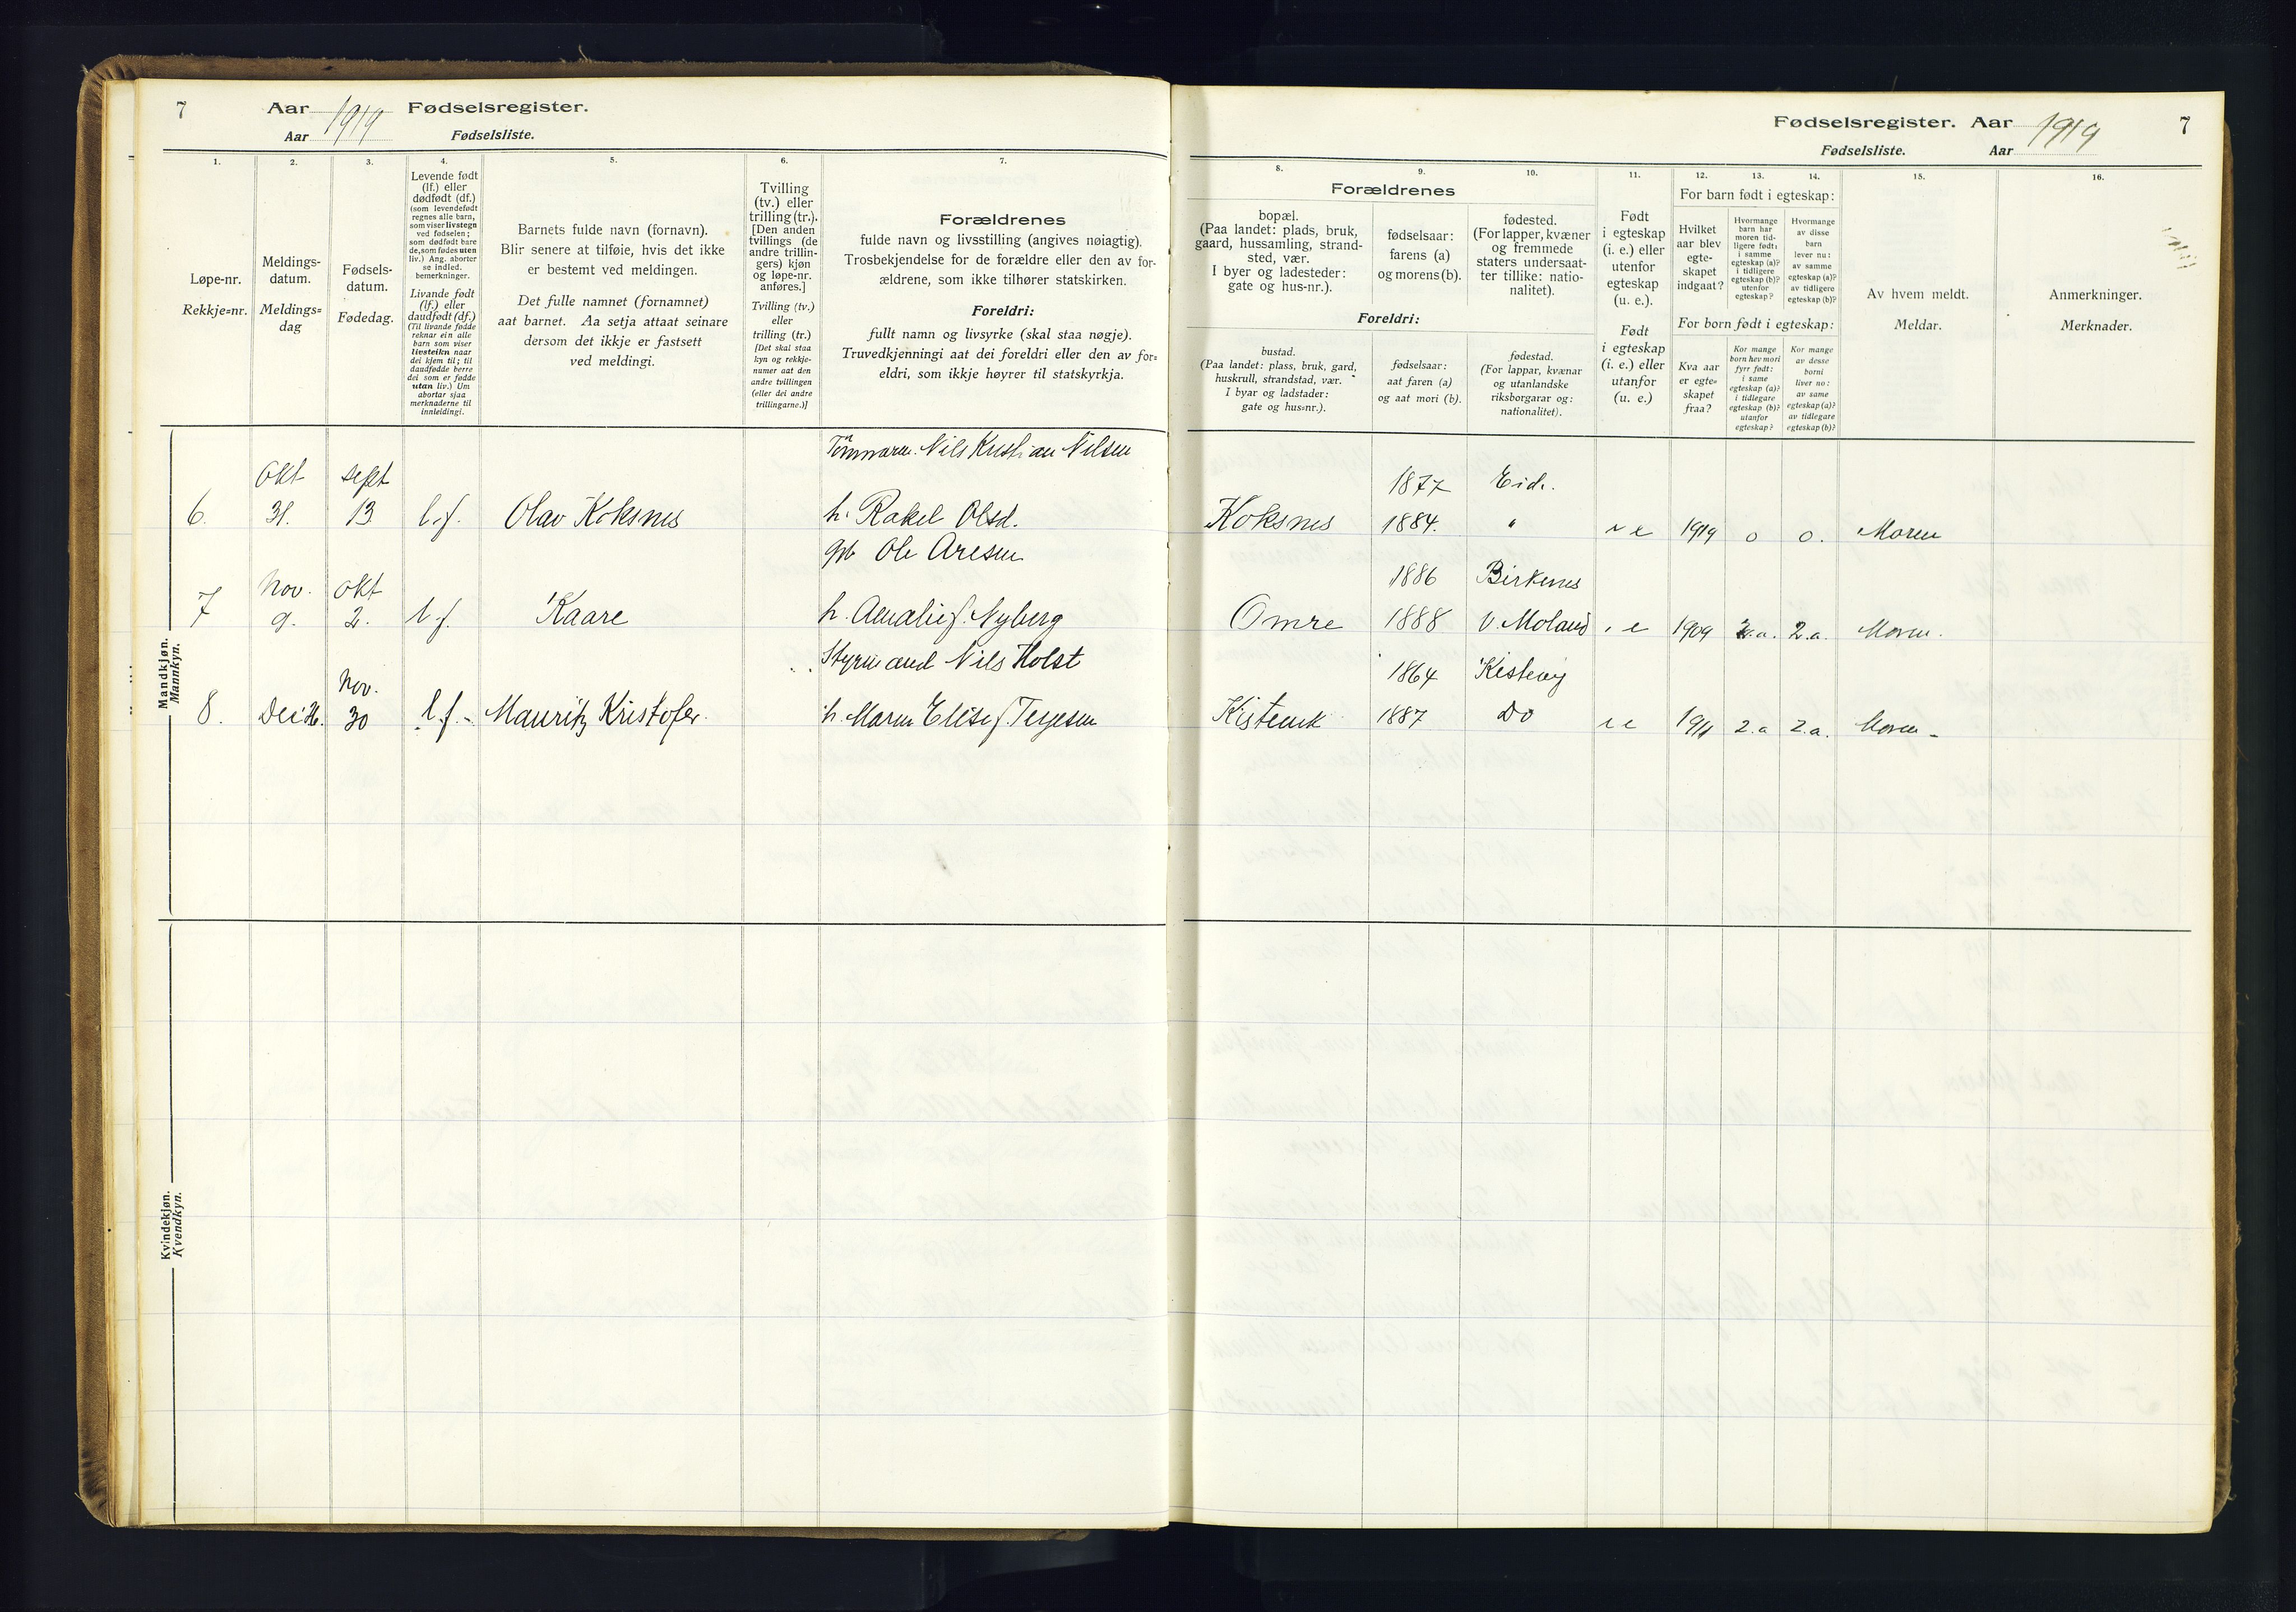 7 Aar 1919 Fødselsregister.
Aar Fødselsliste.
1. 2. 3. 4. 5. 6. 7.
Løpe-nr.
Rekkje=nr.
Meldings-
datum.
Meldings=
dag
Fødsels-
datum.
Fødedag.
Levende født
(lf.) eller
dødfødt (df.)
(som levendefødt
regnes alle barn,
som viser livstegn
ved fødselen;
som dødfødt bare
de, som fødes uten
liv.) Ang. aborter
se indled.
bemerkninger.
Livande født
(lf.) eller
daudfødt (df.)
(Til livande fødde
reknar ein alle
barn som viser
livsteikn naar
dei kjem til; til
daudfødde berre
dei som er fødde
utan liv.) Um
abortar sjaa
merknaderne til
innleidingi.
Barnets fulde navn (fornavn).
Blir senere at tilføie, hvis det ikke
er bestemt ved meldingen.
Det fulle namnet (fornamnet)
aat barnet. Aa setja attaat seinare
dersom det ikkje er fastsett
ved meldingi.
Tvilling
(tv.) eller
trilling (tr.).
[Den anden
tvillings (de
andre trillin-
gers) kjøn
og løpe-nr.
anføres.]
Tvilling (tv.)
eller
trilling (tr.)
[Det skal staa
kyn og rekkje-
numer aat den
andre tvillingen
(eller dei andre
trillingarne.)]
Forældrenes
fulde navn og livsstilling (angives nøiagtig).
Trosbekjendelse for de forældre eller den av for-
ældrene, som ikke tilhører statskirken.
Foreldri:
fullt namn og livsyrke (skal staa nøgje).
Truvedkjenningi aat dei foreldri eller den av for=
eldri, som ikkje høyrer til statskyrkja.
Mandkjøn.
Mannkyn.
Nils Kristian Nilsen
Okt sept
6. 31. 13 l.f. Olav Koksnes h. Rakel Olsd.
gb Ole Aresen
Nov. Okt
7 9. 2. l.f. Kaare h. Amalie f. Nyberg
Styrmand Nils Holst
Nov.
8. 30 l.f. Mauritz Kristofer. h. Maren Elise f. Terjesen
Kvindekjøn.
Kvendkyn.
Fødselsregister. Aar 1919 7
Fødselsliste. Aar
8. 9. 10. 11. 12. 13. 14. 15. 16.
Forældrenes
bopæl.
(Paa landet: plads, bruk,
gaard, hussamling, strand-
sted, vær.
I byer og ladesteder:
gate og hus-nr.).
fødselsaar:
farens (a)
og morens (b).
fødested.
(For lapper, kvæner
og fremmede
staters undersaat-
ter tillike: natio-
nalitet).
Foreldri:
bustad.
(Paa landet: plass, bruk, gard,
huskrull, strandstad, vær.
I byar og ladstader:
gate og hus=nr.).
fødselsaar:
aat faren (a)
og aat mori (b).
fødestad.
(For lappar, kvænar
og utanlandske
riksborgarar og:
nationalitet).
Født
i egteskap
(i. e.) eller
utenfor
egteskap
(u. e.).
Født
i egteskap
(i. e.) eller
utanfor
(u. e.)
For barn født i egteskap:
Hvilket
aar blev
egte-
skapet
indgaat?
Hvormange
barn har
moren tid-
ligere født:
i samme
egteskap (a)?
i tidligere
egteskap (b)?
utenfor
egteskap?
Hvormange
av disse
barn
lever nu:
av samme
egteskap (a)?
av tidligere
egteskap (b)?
For born født i egteskap:
Kva aar
er egte=
skapet
fraa?
Kor mange
born hev mori
fyrr født:
i same
egteskap (a)?
i tidlegare
egteskap (b)?
utanfor
egteskap?
Kor mange
av desse
borni
liver no:
av same
egteskap (a)?
av tidlegare
egteskap (b)?
Av hvem meldt.
Meldar.
Anmerkninger.
Merknader.
1877 Eid.
Koksnes 1884. " i e 1919 0 0. Moren
1886 Birkenes
Omre 1888 V. Moland i e 1909 2.a. 2.a. Moren.
1864
1887 Do i e 1911 2.a 2.a. Moren